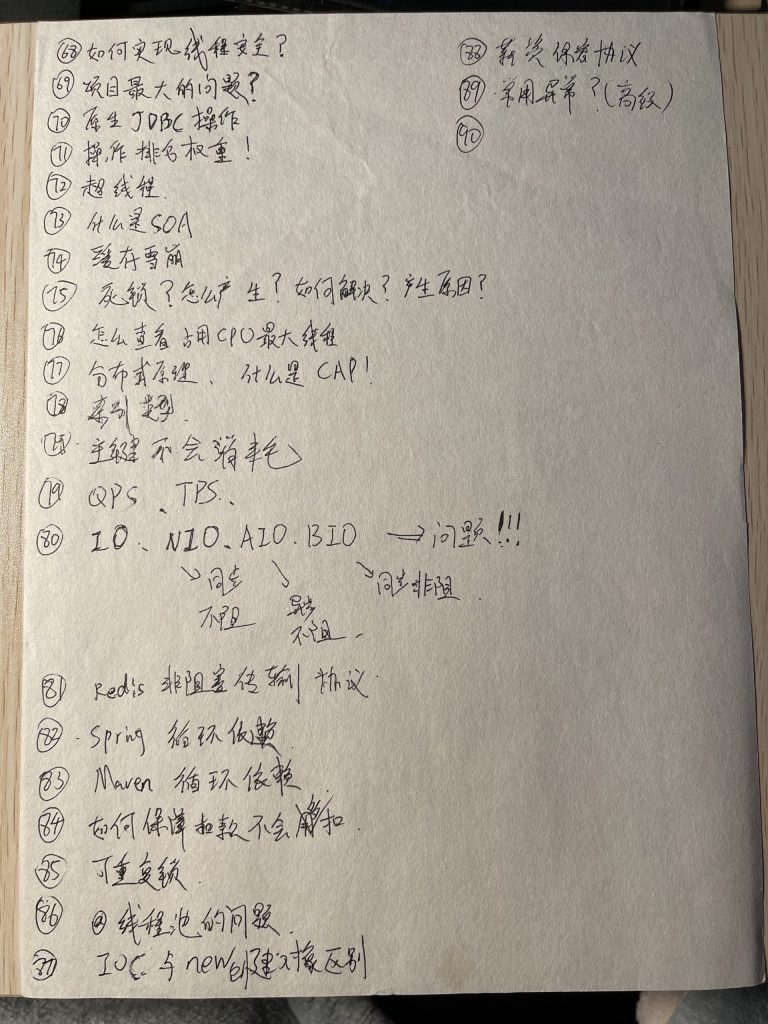 68 如何实现线程安全？
69 项目最大的问题？
70 原生 JDBC 操作
71 操作排名权重！
72 超线程
73 什么是SOA
74 缓存雪崩
75 死锁？怎么产生？如何解决？产生原因？
76 怎么查看占用CPU最大线程
77 分布式原理、什么是CAP！
78 索引类型
主键不会消耗
79 QPS、TPS、
80 IO、NIO、AIO、BIO → 问题！！！
同步 异步 同步非阻
不阻 不阻
81 Redis 非阻塞传输协议
82 Spring 循环依赖
83 Maven 循环依赖
84 如何保障扣款不会 扣
85 可重复锁
86 线程池的问题
87 IOC与new创建对象区别
88 薪资保密协议
89 常用异常？（高级）
90